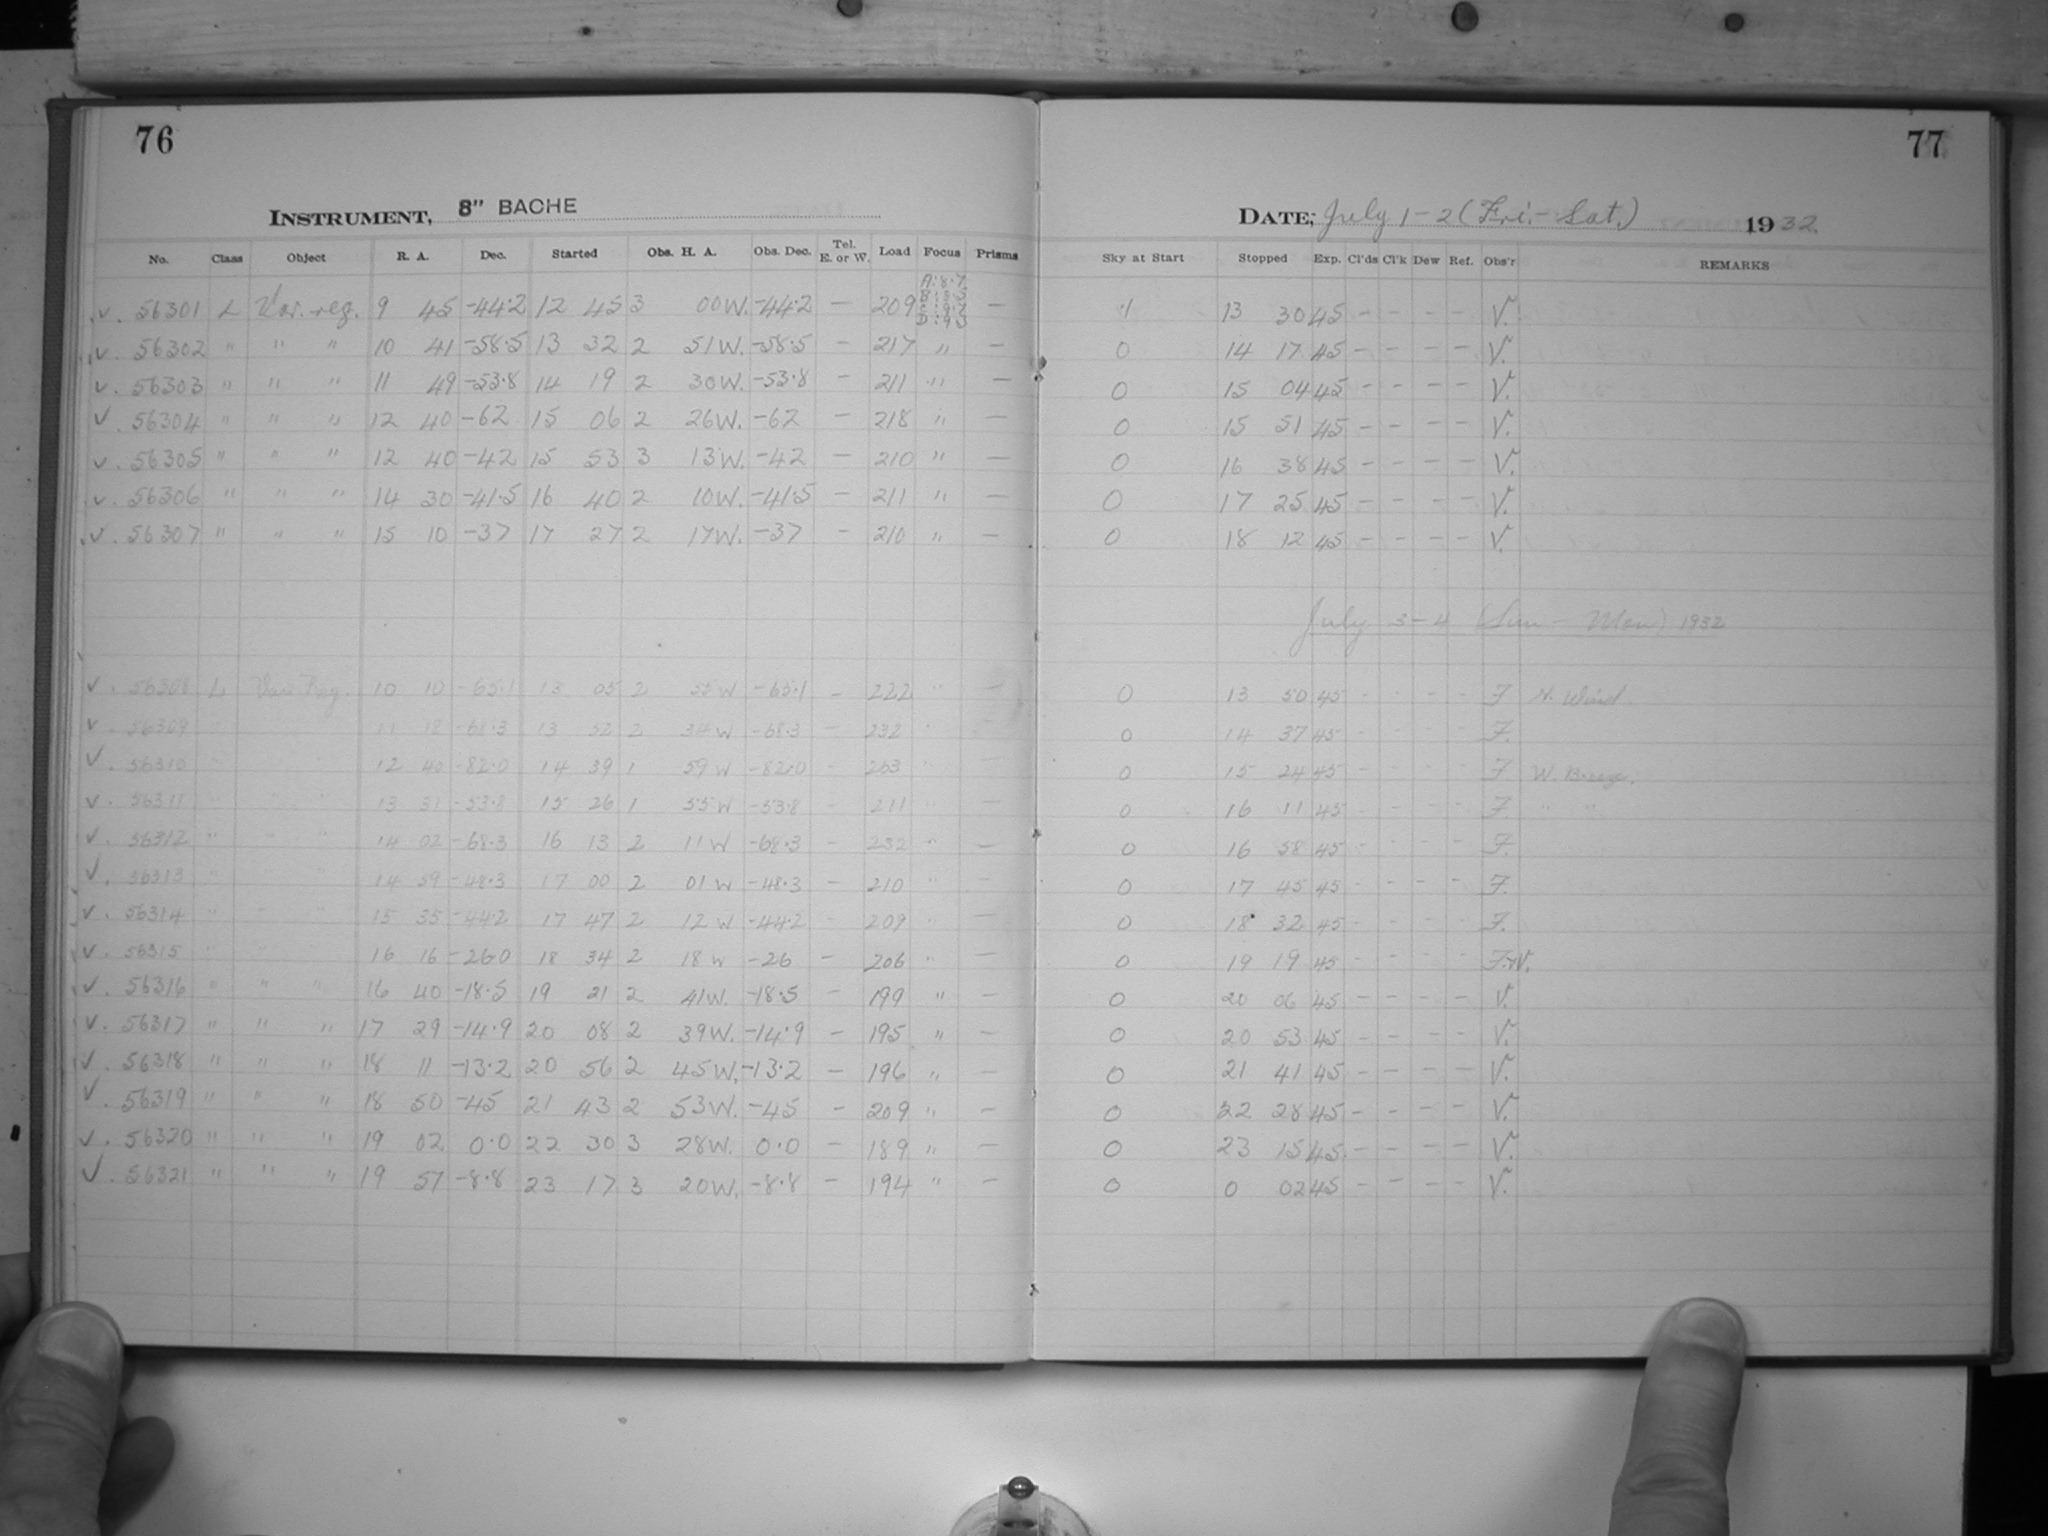 76
77
INSTRUMENT, 8" BACHE
DATE; July 1-2 (Fri.-Sat.) 1932.
No. Class Object R. A. Dec. Started Obs. H. A. Obs. Dec. Tel. E. or W. Load Focus Prisms Sky at Start Stopped Exp. Cl'ds Cl'k Dew Ref. Obs'r REMARKS
v. 56301 L Var. reg. 9 45 -44.2 12 45 3 00W. -44.2 — 209 — 13 30 45 - - - - V.
v. 56302 " " " 10 41 -58.5 13 32 2 51W. -58.5 — 217 " — 0 14 17 45 - - - - V.
v. 56303 " " " 11 49 -53.8 14 19 2 30W. -53.8 — 211 " — 0 15 04 45 - - - - V.
v. 56304 " " " 12 40 -62 15 06 2 26W. -62 — 218 " — 0 15 51 45 - - - - V.
v. 56305 " " " 12 40 -42 15 53 3 13W. -42 — 210 " — 0 16 38 45 - - - - V.
v. 56306 " " " 14 30 -41.5 16 40 2 10W. -41.5 — 211 " — 0 17 25 45 - - - - V.
v. 56307 " " " 15 10 -37 17 27 2 17W. -37 — 210 " — 0 18 12 45 - - - - V.
July 3-4 (Sun - Mon) 1932
v. 56308 L Var. Reg. 10 10 -65.1 13 05 2 55W -65.1 — 222 " — 0 13 50 45 - - - - F N. Wind.
v. 56309 11 18 -68.3 13 52 2 34W -68.3 — 232 " 0 14 37 45 - - - - F.
v. 56310 " 12 40 -82.0 14 39 1 59W -82.0 — 263 " — 0 15 24 45 - - - - F W. Breeze.
v. 56311 " " " 13 31 -53.8 15 26 1 55W -53.8 — 211 " — 0 16 11 45 - - - - F. " "
v. 56312 " " " 14 02 -68.3 16 13 2 11W -68.3 — 232 " — 0 16 58 45 - - - - F.
v. 56313 " " " 14 59 -48.3 17 00 2 01W -48.3 — 210 " — 0 17 45 45 - - - - F.
v. 56314 " " " 15 35 -44.2 17 47 2 12W -44.2 — 209 " — 0 18 32 45 - - - - F.
v. 56315 " " " 16 16 -26.0 18 34 2 18W -26 — 206 " — 0 19 19 45 - - - - F.+V.
v. 56316 " " " 16 40 -18.5 19 21 2 41W. -18.5 — 199 " — 0 20 06 45 - - - - V.
v. 56317 " " " 17 29 -14.9 20 08 2 39W. -14.9 — 195 " — 0 20 53 45 - - - - V.
v. 56318 " " " 18 11 -13.2 20 56 2 45W. -13.2 — 196 " — 0 21 41 45 - - - - V.
v. 56319 " " " 18 50 -45 21 43 2 53W. -45 — 209 " — 0 22 28 45 - - - - V.
v. 56320 " " " 19 02 0.0 22 30 3 28W. 0.0 — 189 " — 0 23 15 45 - - - - V.
v. 56321 " " " 19 57 -8.8 23 17 3 20W. -8.8 — 194 " — 0 0 02 45 - - - - V.